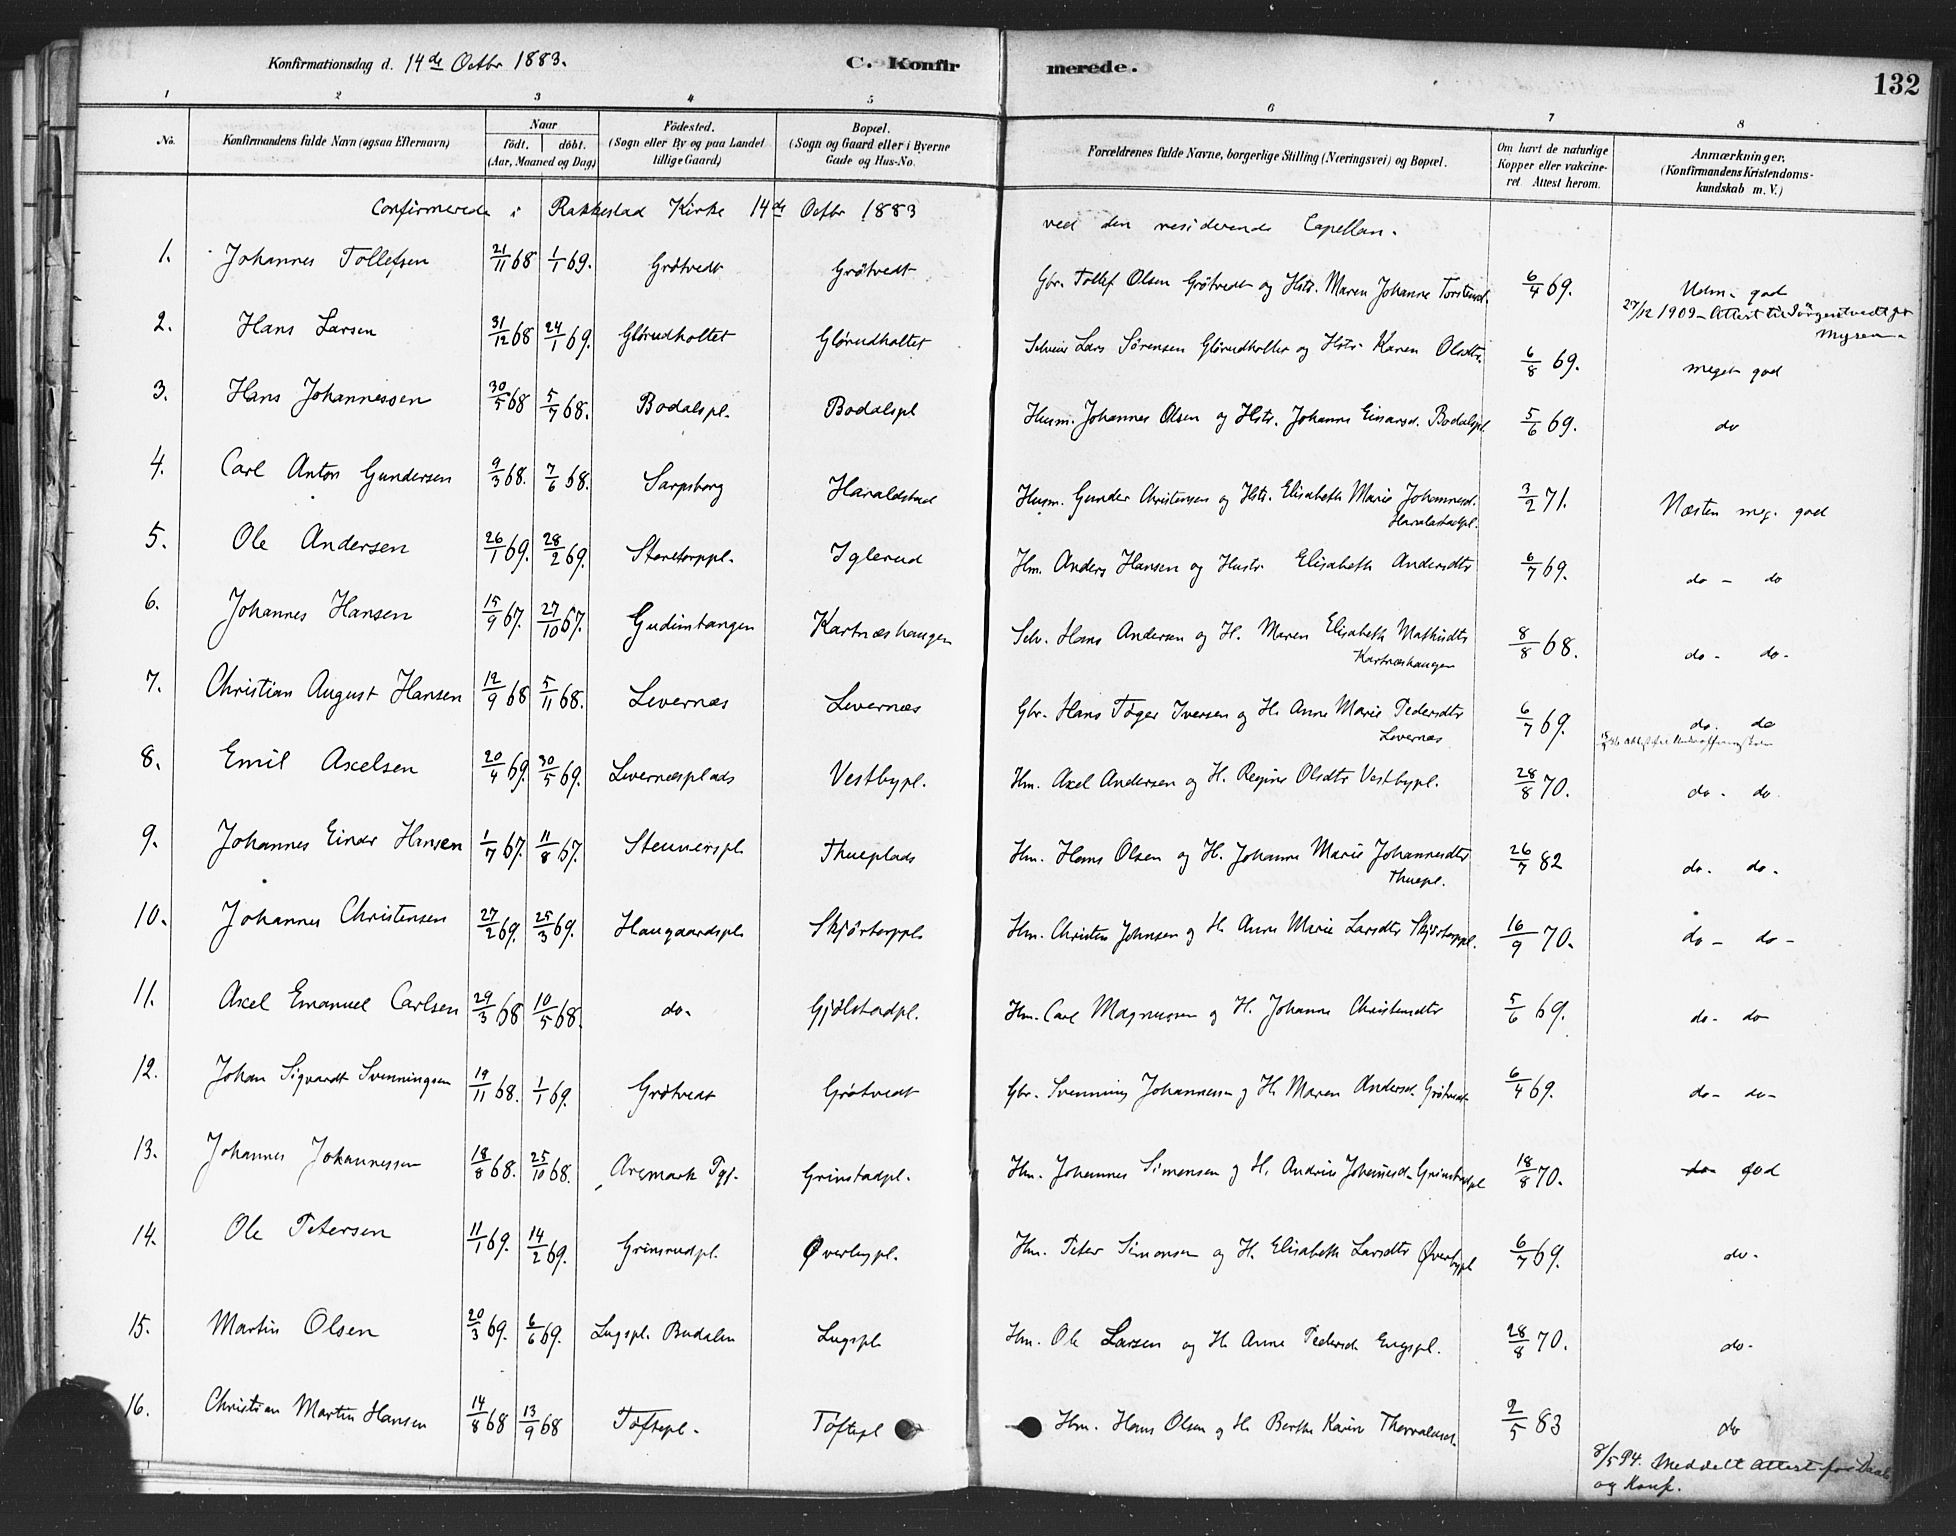 Konfirmationsdag d. 14de Octbr 1883. C. Konfirmerede. 132
1 2 3 4 5 6 7 8
No. Konfirmandens fulde Navn (ogsaa Efternavn) Naar födt. döbt. (Aar, Maaned og Dag) Födested. (Sogn eller By og paa Landet tillige Gaard) Bopæl. (Sogn og Gaard eller i Byerne Gade og Hus-No. Forældrenes fulde Navne, borgerlige Stilling (Næringsvei) og Bopæl. Om havt de naturlige Kopper eller vakcineret. Attest herom. Anmærkninger. (Konfirmandens Kristendomskundskab m. V.)
Confirmerede i Rakkestad Kirke 14de Octbr 1883 ved den residerende Capellan.
1. Johannes Tollefsen 21/11 68 1/1 69. Grötvedt Grötvedt Gbr. Tollef Olsen Grötvedt og Hstr. Maren Johanne Torstensd. 6/4 69. Udm. god
27/12 1909 - Attest til
Mysen
2. Hans Larsen 31/12 68 24/1 69. Glörudholtet Glörudholtet Selveier Lars Sörensen Glörudholtet og Hstr. Karen Olsdtr. 6/8 69. meget god
3. Hans Johannessen 30/5 68 5/7 68. Bodalspl. Bodalspl Husm. Johannes Olsen og Hstr. Johanne Einarsd. Bodalspl. 5/6 69. do
4. Carl Anton Gundersen 9/3 68. 7/6 68. Sarpsborg Haraldstad Husm. Gunder Christensen og Hstr. Elisabeth Marie Johannesd. Haraldstadpl. 3/2 71. Næsten meg. god
5. Ole Andersen 26/1 69. 28/2 69. Staretorppl. Iglerud Hm. Anders Hansen og Hustr Elisabeth Andersdtr 6/7 69. do - do
6. Johannes Hansen 15/9 67. 27/10 67. Gudimtangen Kartnæshaugen Selv. Hans Andersen og H. Maren Elisabeth Mathisdtr Kartnæshaugen 8/8 68. do - do -
7. Christian August Hansen 12/9 68 5/11 68. Levernæs Levernæs Gbr. Hans Töger Iversen og H. Anne Marie Pedersdtr Levernæs 6/7 69. do. do
8. Emil Axelsen 20/4 69. 30/5 69. Levernæsplads Vestbypl. Hm. Axel Andersen og H. Regine Olsdtr Vestbypl. 28/8 70. do. do
9. Johannes Einar Hansen 1/7 67. 11/8 67. Stennerspl Thueplads Hm. Hans Olsen og H. Johanne Marie Johannesdtr Thuepl. 26/7 82 do. do.
10. Johannes Christensen 27/2 69. 25/3 69. Haugaardspl Skjörtorppl Hm. Christen Johnsen og H. Anne Marie Larsdtr Skjörtorppl. 16/9 70. do - do -
11. Axel Emanuel Carlsen 29/3 68 10/5 68. do. Gjölstadpl. Hm. Carl Magnussen og H. Johanne Christensdtr 5/6 69. do - do
12. Johan Sigvardt Svenningsen 19/11 68. 1/1 69. Grötvedt Grötvedt Gbr. Svenning Johannessen og H. Maren Andersd. Grötvedt 6/4 69. do - do -
13. Johannes Johannessen 18/8 68. 25/10 68. Aremark Pgj. Grinstadpl. Hm. Johannes Simensen og H. Andrine Johannesd. Grinstadpl 18/8 70. do god
14. Ole Petersen 11/1 69. 14/2 69. Grinsrudpl. Øverbypl. Hm. Peter Simonsen og H. Elisabeth Larsdtr Øverbypl 6/7 69. do.
15. Martin Olsen 20/3 69. 6/6 69. Lugspl. Budalen Lugspl Hm. Ole Larsen og H. Anne Pedersd. 28/8 70. do.
16. Christian Martin Hansen 14/8 68 13/9 68 Toftepl. Toftepl Hm. Hans Olsen og H. Berthe Karine Thorvaldsd. 2/5 83 do
8/5 94. Meddelt Attest for Daab
og Konf.